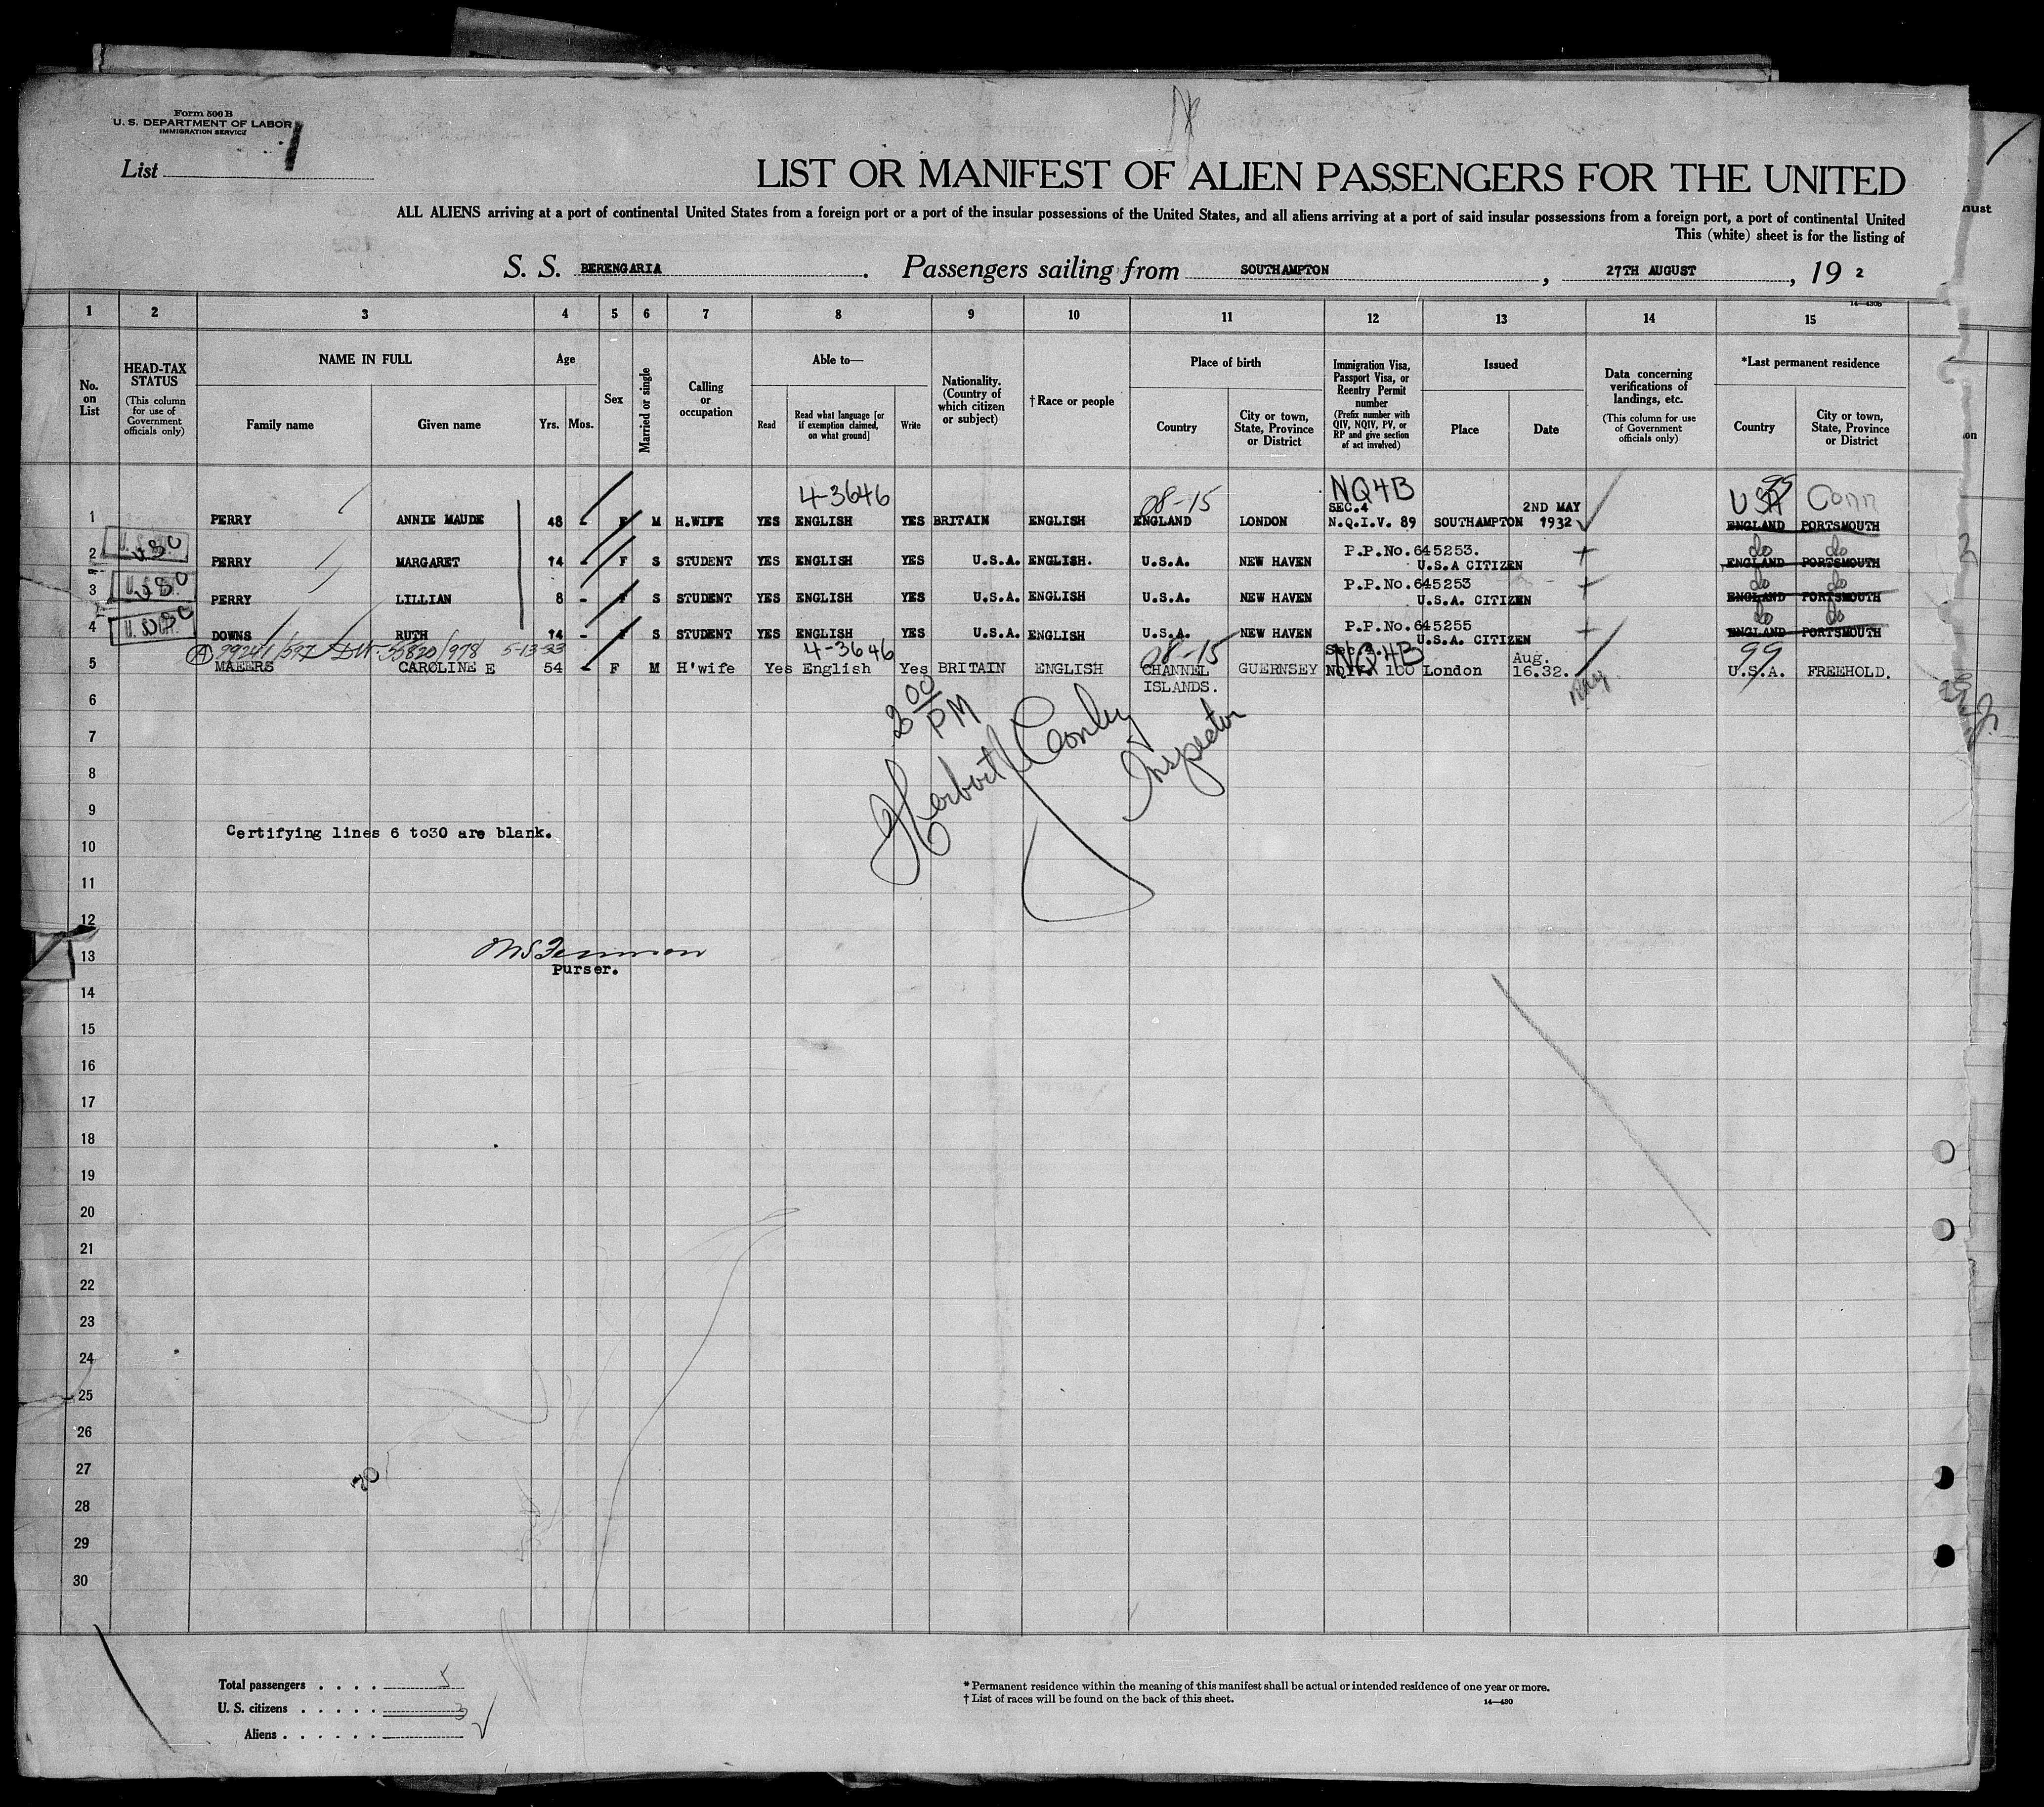 Form 500 B
U. S. DEPARTMENT OF LABOR
IMMIGRATION SERVICE
List 1
LIST OR MANIFEST OF ALIEN PASSENGERS FOR THE UNITED
ALL ALIENS arriving at a port of continental United States from a foreign port or a port of the insular possessions of the United States, and all aliens arriving at a port of said insular possessions from a foreign port, a port of continental United
This (white) sheet is for the listing of
S. S. BERENGARIA. Passengers sailing from SOUTHAMPTON, 27TH AUGUST, 19 2
1 2 3 4 5 6 7 8 9 10 11 12 13 14 15
No. on List
HEAD-TAX STATUS
(This column for use of Government officials only)
NAME IN FULL
Family name
Given name
Age
Yrs. Mos.
Sex
Married or single
Calling or occupation
Able to—
Read
Read what language [or if exemption claimed, on what ground]
Write
Nationality. (Country of which citizen or subject)
† Race or people
Place of birth
Country
City or town, State, Province or District
Immigration Visa, Passport Visa, or Reentry Permit number
(Prefix number with QIV, NQIV, PV, or RP and give section of act involved)
Issued
Place
Date
Data concerning verifications of landings, etc.
(This column for use of Government officials only)
*Last permanent residence
Country
City or town, State, Province or District
4-3646 08-15 NQ4B USA 99 Conn
SEC.4 2ND MAY
1 PERRY ANNIE MAUDE 48 - F M H.WIFE YES ENGLISH YES BRITAIN ENGLISH ENGLAND LONDON N.Q.I.V. 89 SOUTHAMPTON 1932 ENGLAND PORTSMOUTH
P.P.No.645253. do do
2 USC PERRY MARGARET 14 - F S STUDENT YES ENGLISH YES U.S.A. ENGLISH. U.S.A. NEW HAVEN U.S.A CITIZEN ENGLAND PORTSMOUTH
P.P.No.645253 do do
3 USC PERRY LILLIAN 8 - F S STUDENT YES ENGLISH YES U.S.A. ENGLISH U.S.A. NEW HAVEN U.S.A. CITIZEN ENGLAND PORTSMOUTH
P.P.No.645255 do do
4 USC DOWNS RUTH 14 - F S STUDENT YES ENGLISH YES U.S.A. ENGLISH U.S.A. NEW HAVEN U.S.A. CITIZEN ENGLAND PORTSMOUTH
A 99241/597 55820/978 5-13-33 4-3646 08-15 Sec.4. NQ4B Aug. 99
5 MAEERS CAROLINE E 54 - F M H'wife Yes English Yes BRITAIN ENGLISH CHANNEL GUERNSEY NQIV. 100 London 16.32. U.S.A. FREEHOLD.
ISLANDS.
6
2 00 PM
7
Herbert Conley
Inspector
8
9
Certifying lines 6 to30 are blank.
10
11
12
13
Purser.
14
15
16
17
18
19
20
21
22
23
24
25
26
27
28
29
30
Total passengers . . . . 5
U. S. citizens . . . . . 3
Aliens . . . . . .
* Permanent residence within the meaning of this manifest shall be actual or intended residence of one year or more.
† List of races will be found on the back of this sheet.
14—430